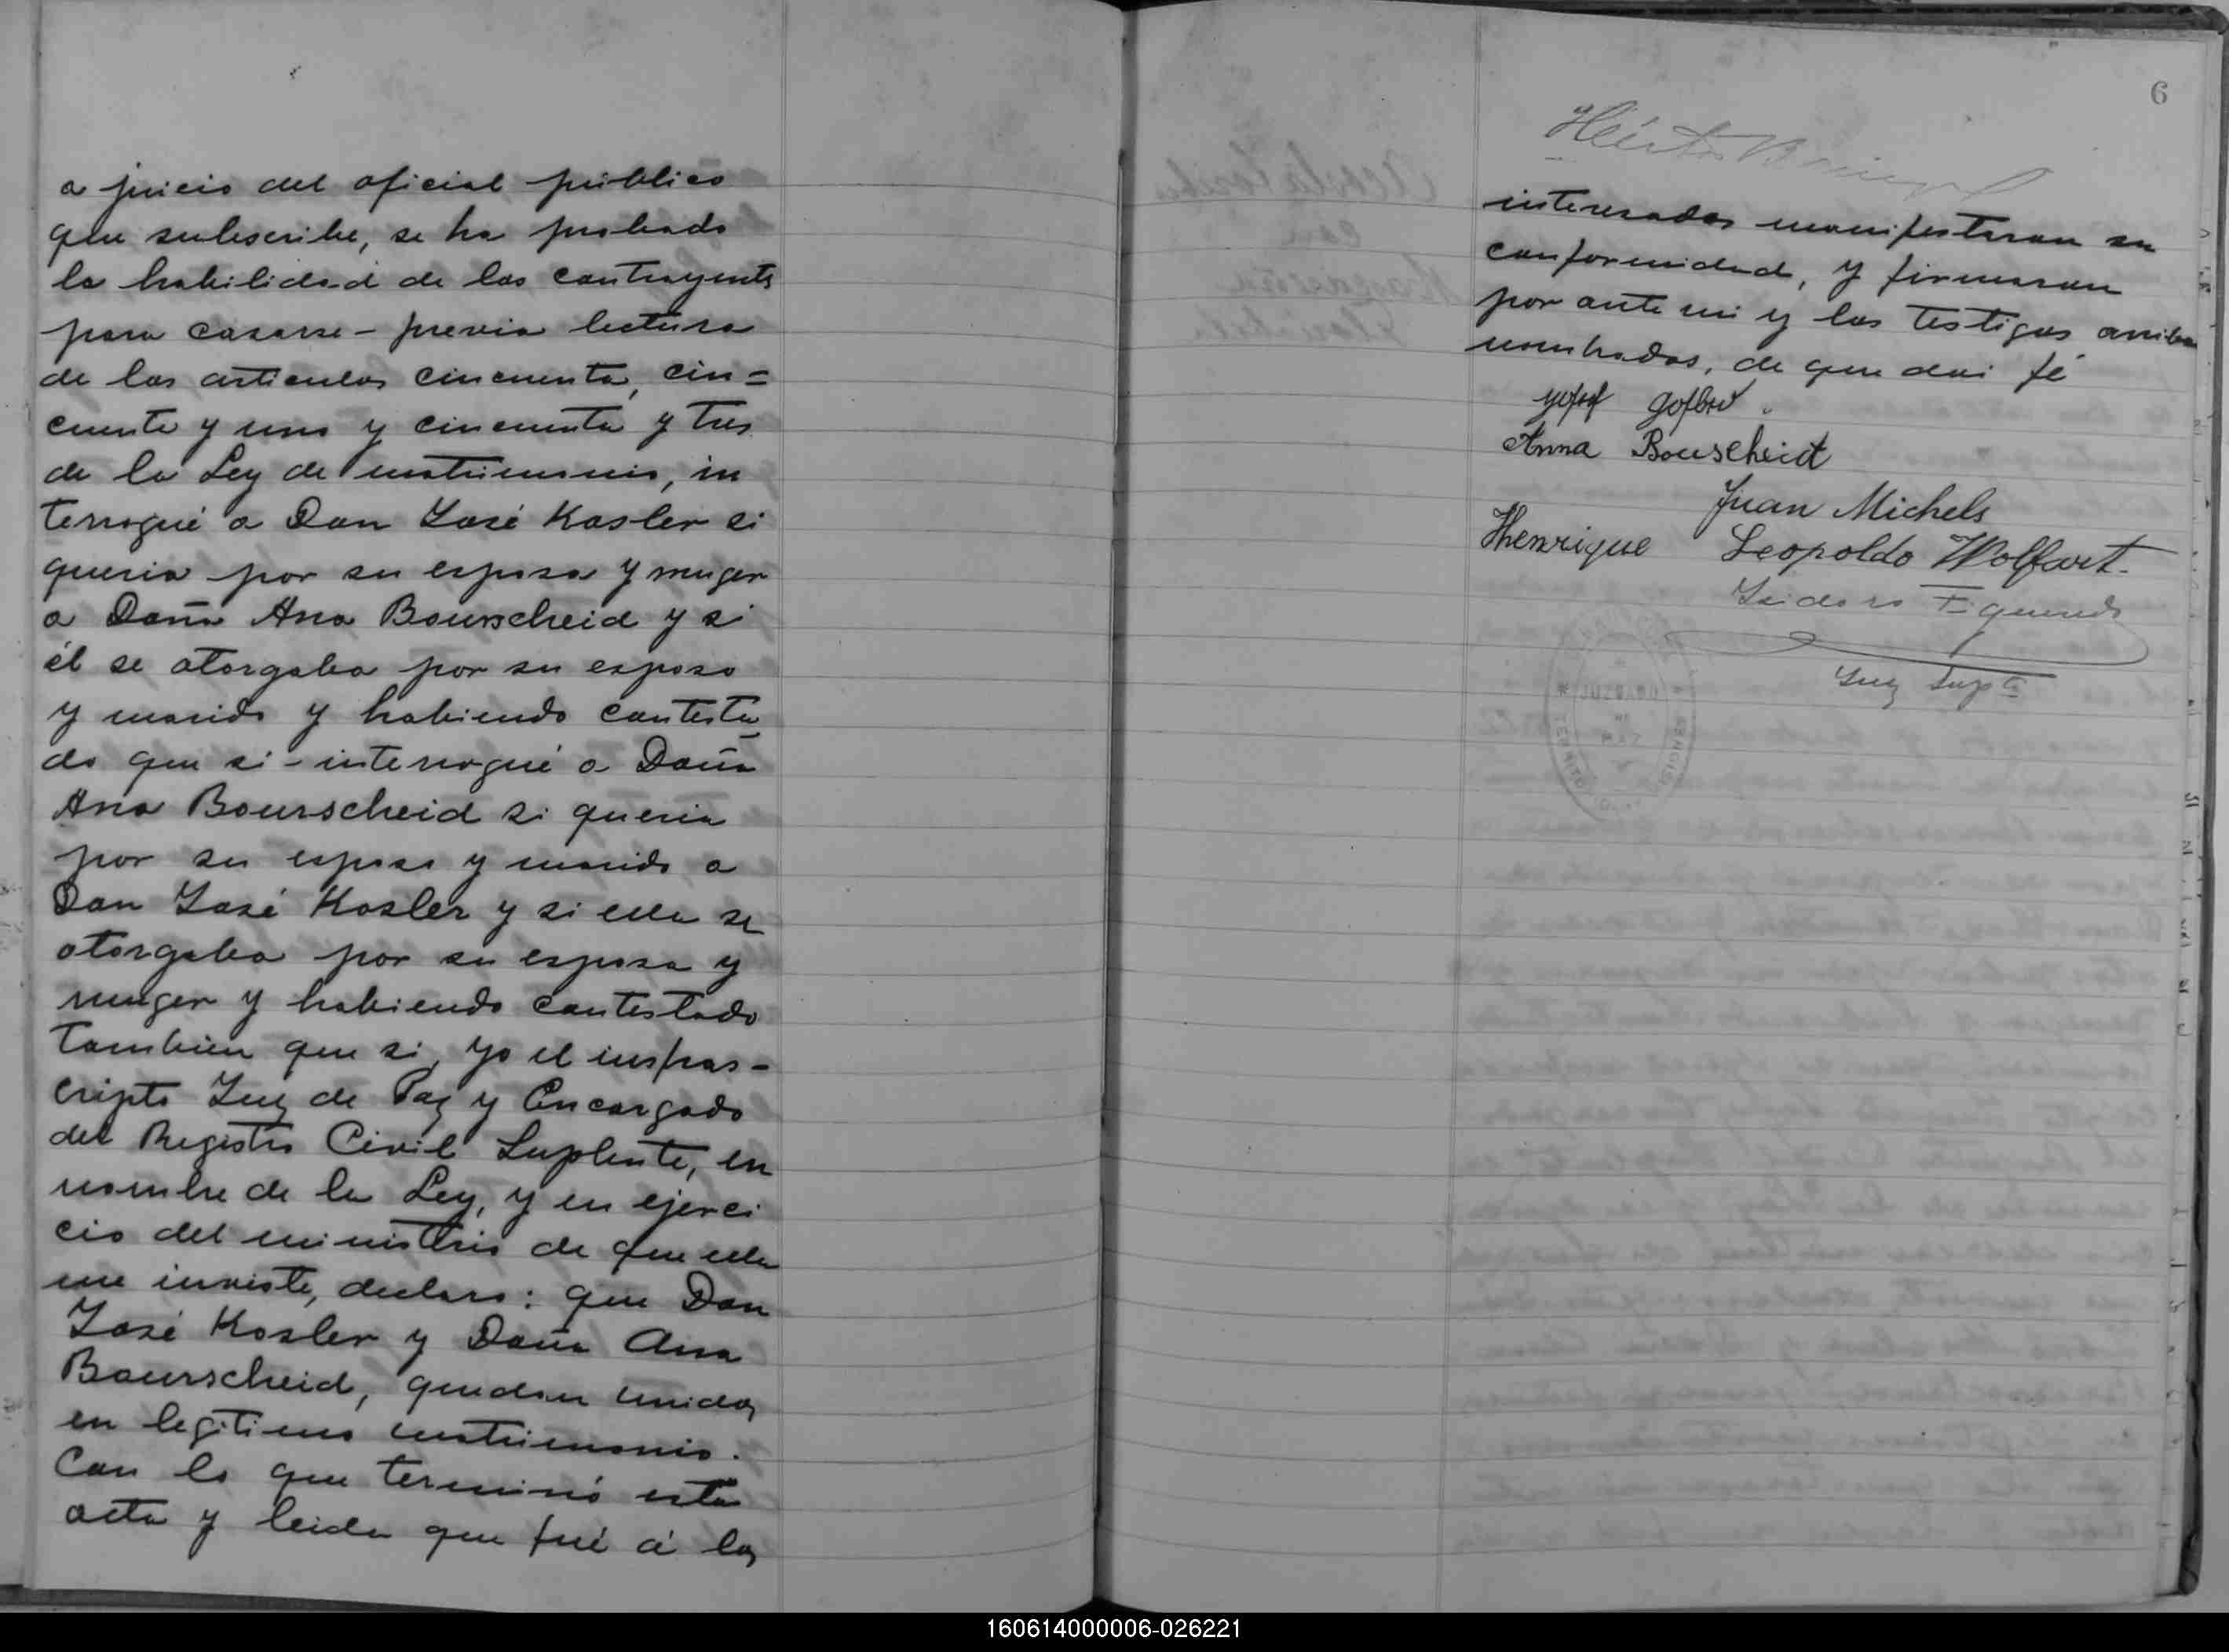 a juicio del oficial público
que subscribe, se ha probado
la habilidad de los contrayents
para casarse - previa lectura
de los articulos cincuenta, cin=
cuenta y uno y cincuenta y tres
de la Ley de matrimonio, in
terrogué a Don José Kosler si
queria por su esposa y muger
a Doña Ana Bourscheid y si
él se otorgaba por su esposo
y marido y habiendo contesta
do que si - interrogué a Doña
Ana Bourscheid si queria
por su esposo y marido a
Don José Kosler y si ella se
otorgaba por su esposa y
muger y habiendo contestado
tambien que si, yo el infras-
cripto Juez de Paz y Encargado
del Registro Civil Suplente, en
nombre de la Ley, y en ejerci
cio del ministerio de que ella
me inviste, declaro: que Don
José Kosler y Doña Ana
Bourscheid, quedan unidos
en legitimo matrimonio.
Con lo que terminó esta
acta y leida que fué á los
6
Héctor
interesados manifestaron su
conformidad, y firmaron
por ante mi y los testigos arriba
nombrados, de que doi fé
Anna Bouscheidt
Juan Michels
Henrique Leopoldo Wolfart.
Isidoro Figueredo
Juez Supte
JUZGADO
DE
PAZ
160614000006-026221